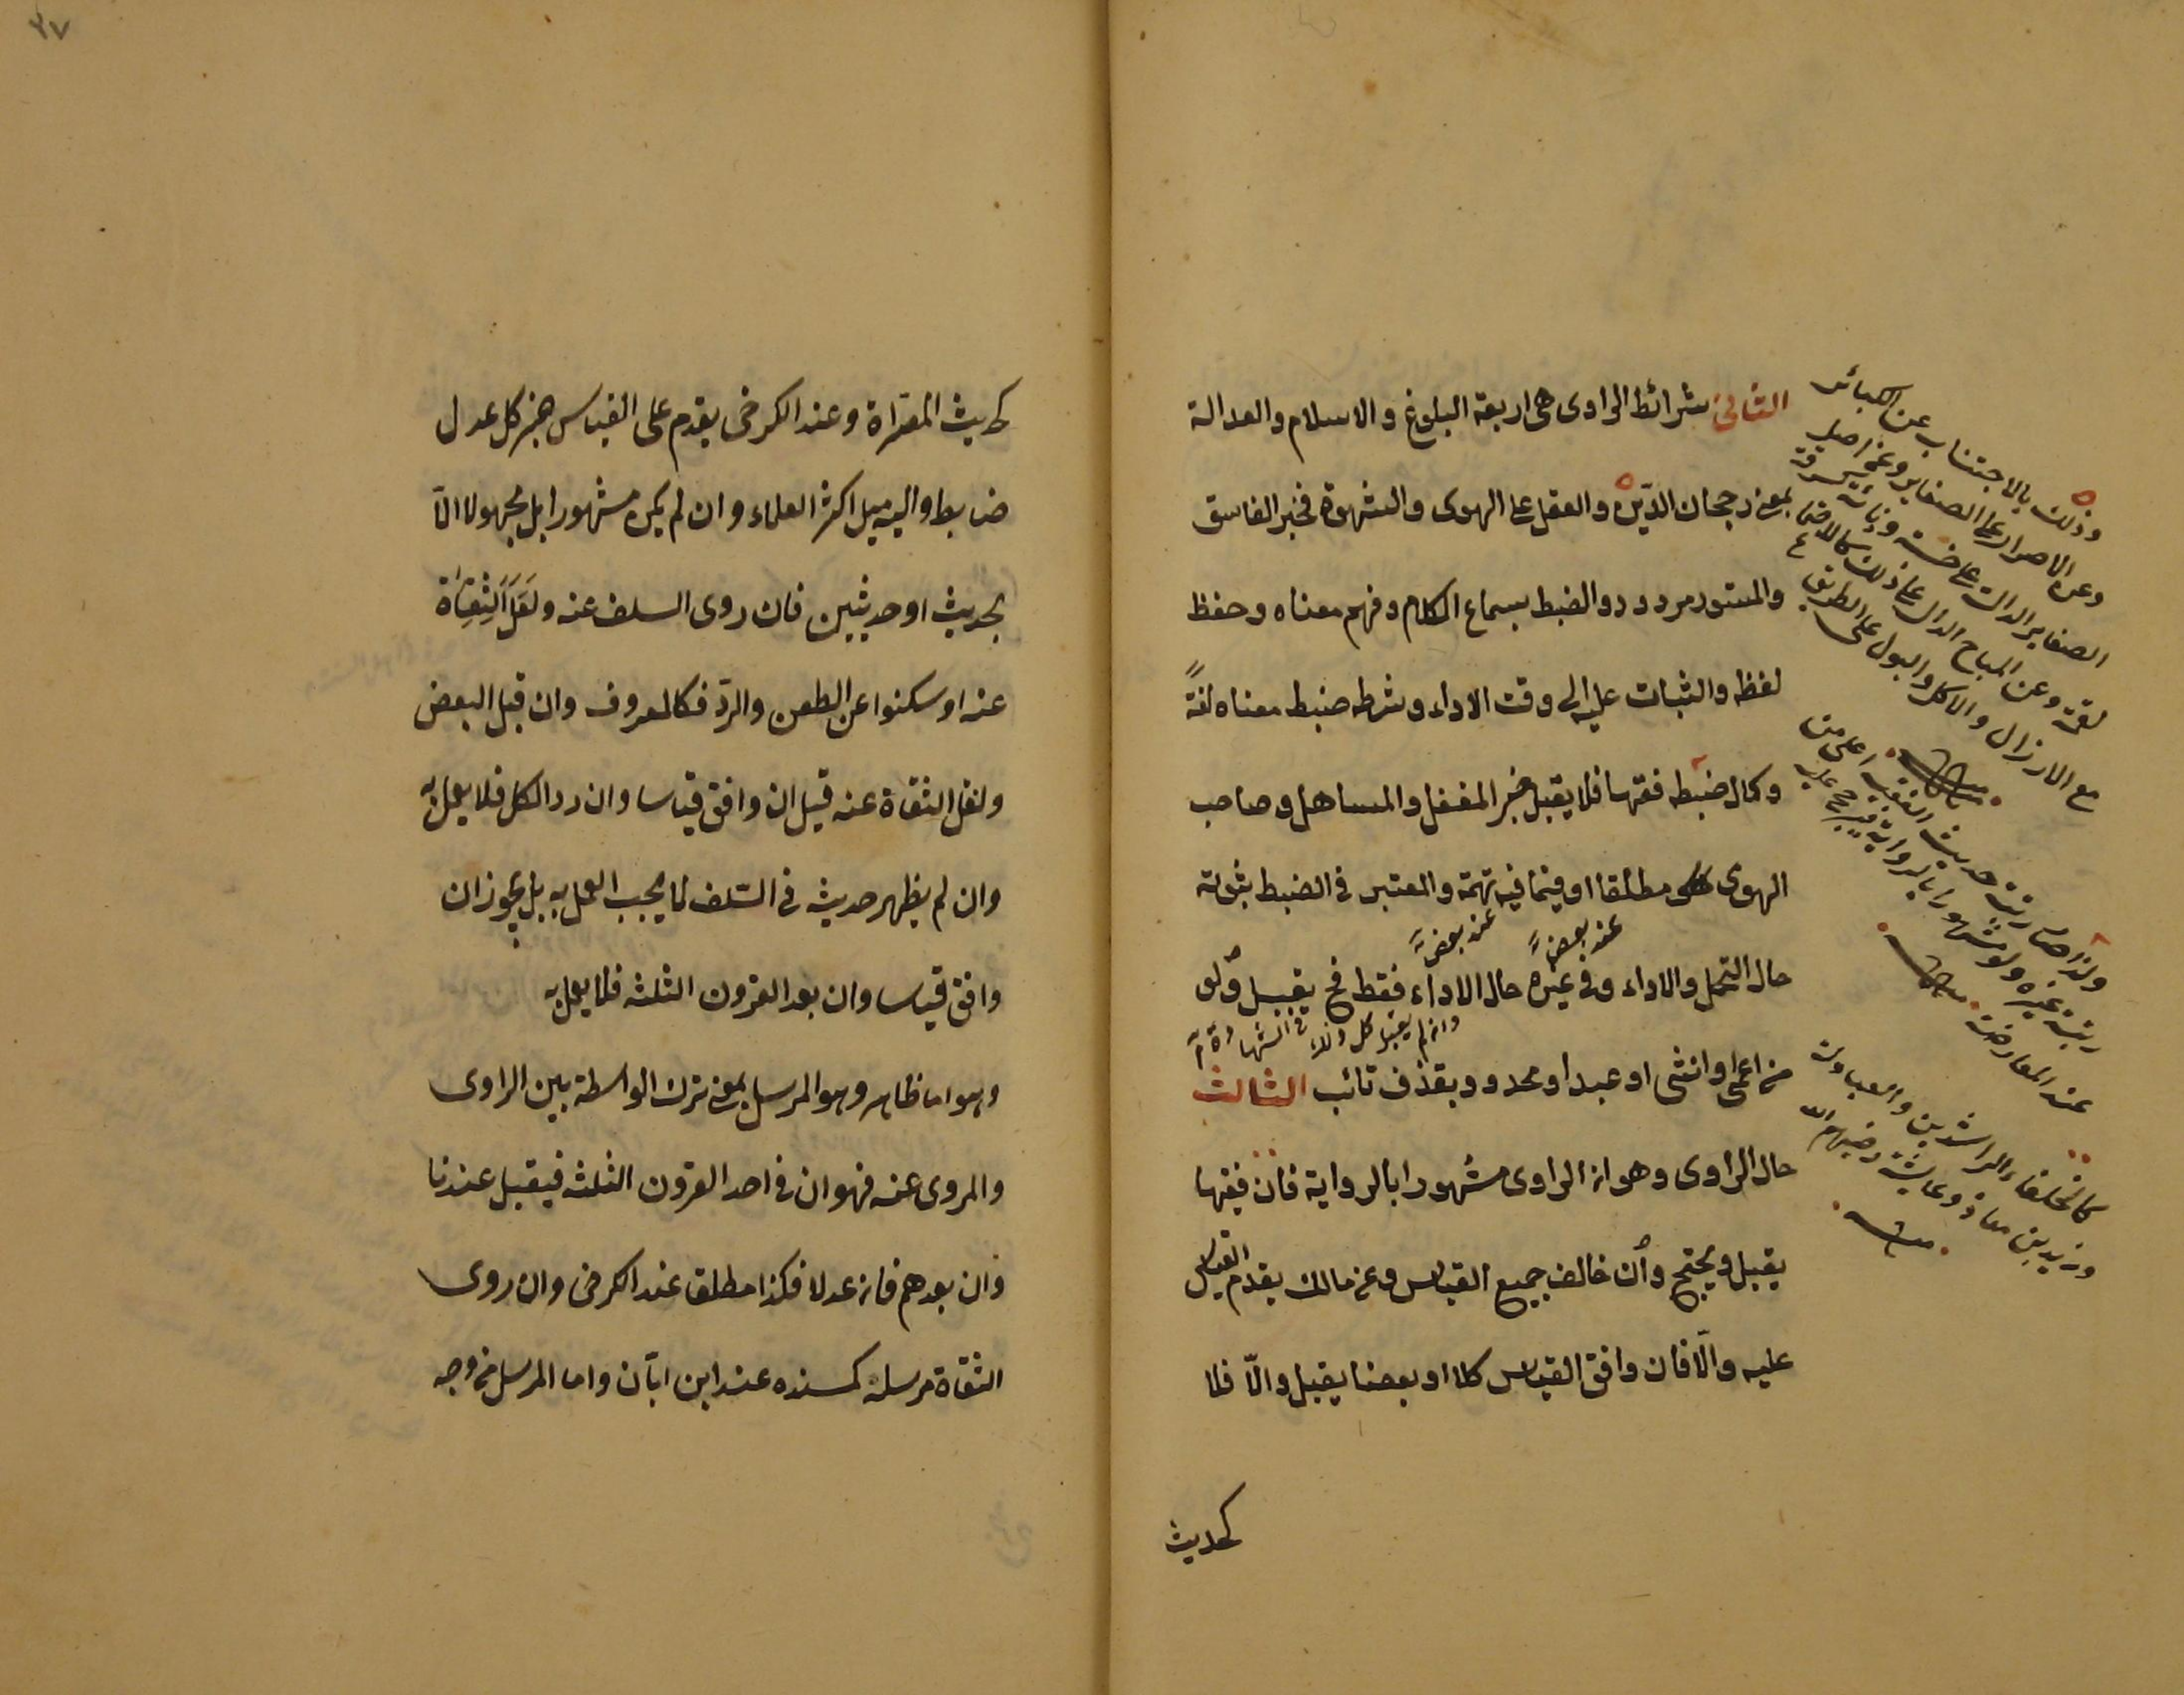 الثانى شرائط الراوى هى اربعة البلوغ والاسلام والعدالة
بمعنى رجحان الدين والعقل على الهوى والشهوة فخبر الفاسق
والمستور مردود والضبط بسماع الكلام وفهم معناه وحفظ
لفظه والثبات عليه الى وقت الاداء وشرطه ضبط معناه لغة
وكمال ضبطه فقها فلا يقبل خبر المغفل والمساهل وصاحب
الهوى مطلقا او فيما فيه تهمة والمعتبر فى الضبط
عند بعض عند بعض
حال التحمل والاداء وفى غيره حال الاداء فقط فح يقبل ولو
وان لم يقبل كل واحد فى الشهادة
من اعمى او انثى او عبد او محدود بقذف تائب الثالث
حال الراوى وهو ان الراوى مشهورا بالرواية فان فقيها
يقبل ويحتج وان خالف جميع القياس وعن مالك يقدم القياس
عليه والّا فان وافق القياس كلا او بعضا يقبل والّا فلا
كحديث
وذلك بالاجتناب عن الكبائر
وعن الاصرار على الصغاير وعن اصل
الصغاير الدالة على خسة ودنائة كسرقة
لقمة وعن المباح الدال على ذلك كالاجتماع
مع الارزال والاكل والبول على الطريق
ولذا صار رتبة حديث الفقيه اعلى من
رتبة غيره ولو مشهورا بالرواية فيرجح عليه
عند المعارضة
كالخلفاء الراشدين والعبادلة
وزيد بن معاذ وعايشة رضيهم الله
٣٧
كحديث المصراة وعند الكرخى يقدم على القياس خبر كل عدل
ضابط واليه ميل اكثر العلماء وان لم يكن مشهورا بل مجهولا الّا
بحديث او حديثين فان روى السلف عنه ونقل الثقاة
عنه او سكتوا عن الطعن والردّ فكالمعروف وان قبل البعض
ونقل الثقاة عنه قيل ان وافق قياسا وان رد الكل فلا يعمل به
وان لم يظهر حديثه فى السّلف لا يجب العمل به بل يجوز ان
وافق قياسا وان بعد القرون الثلثة فلا يعمل به
وهو اما ظاهر وهو المرسل بمعنى ترك الواسطة بين الراوى
والمروى عنه فهو ان فى احد القرون الثلثة فيقبل عندنا
وان بعدهم فان عدلا فكذا مطلقا عند الكرخى وان روى
الثقاة مرسله كمسنده عند ابن ابّان واما المرسل من وجه